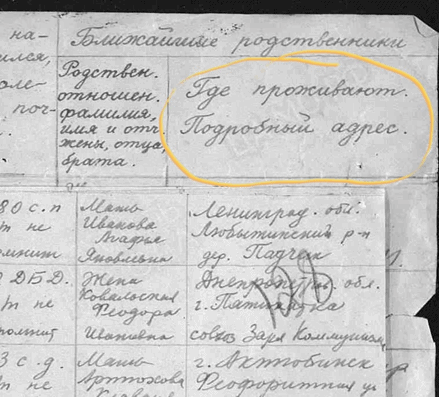 на-
Ближайшие родственники
Родствен.
отношен.
фамилия,
имя и отч.
жены, отца,
брата.
поч-
Где проживают.
Подробный адрес.
80 с.п
Мать
Иванова
Агафья
Яковлевна
Ленинград. обл.
Любытинский р-н
дер.
ДБД.
т не
Жена
Феодора
Ивановна
Днепропетр. обл.
г. Пятихатка
совхоз Заря Коммунизма
128
3 с.д.
т не
Мать
Артюхова
г. Актюбинск